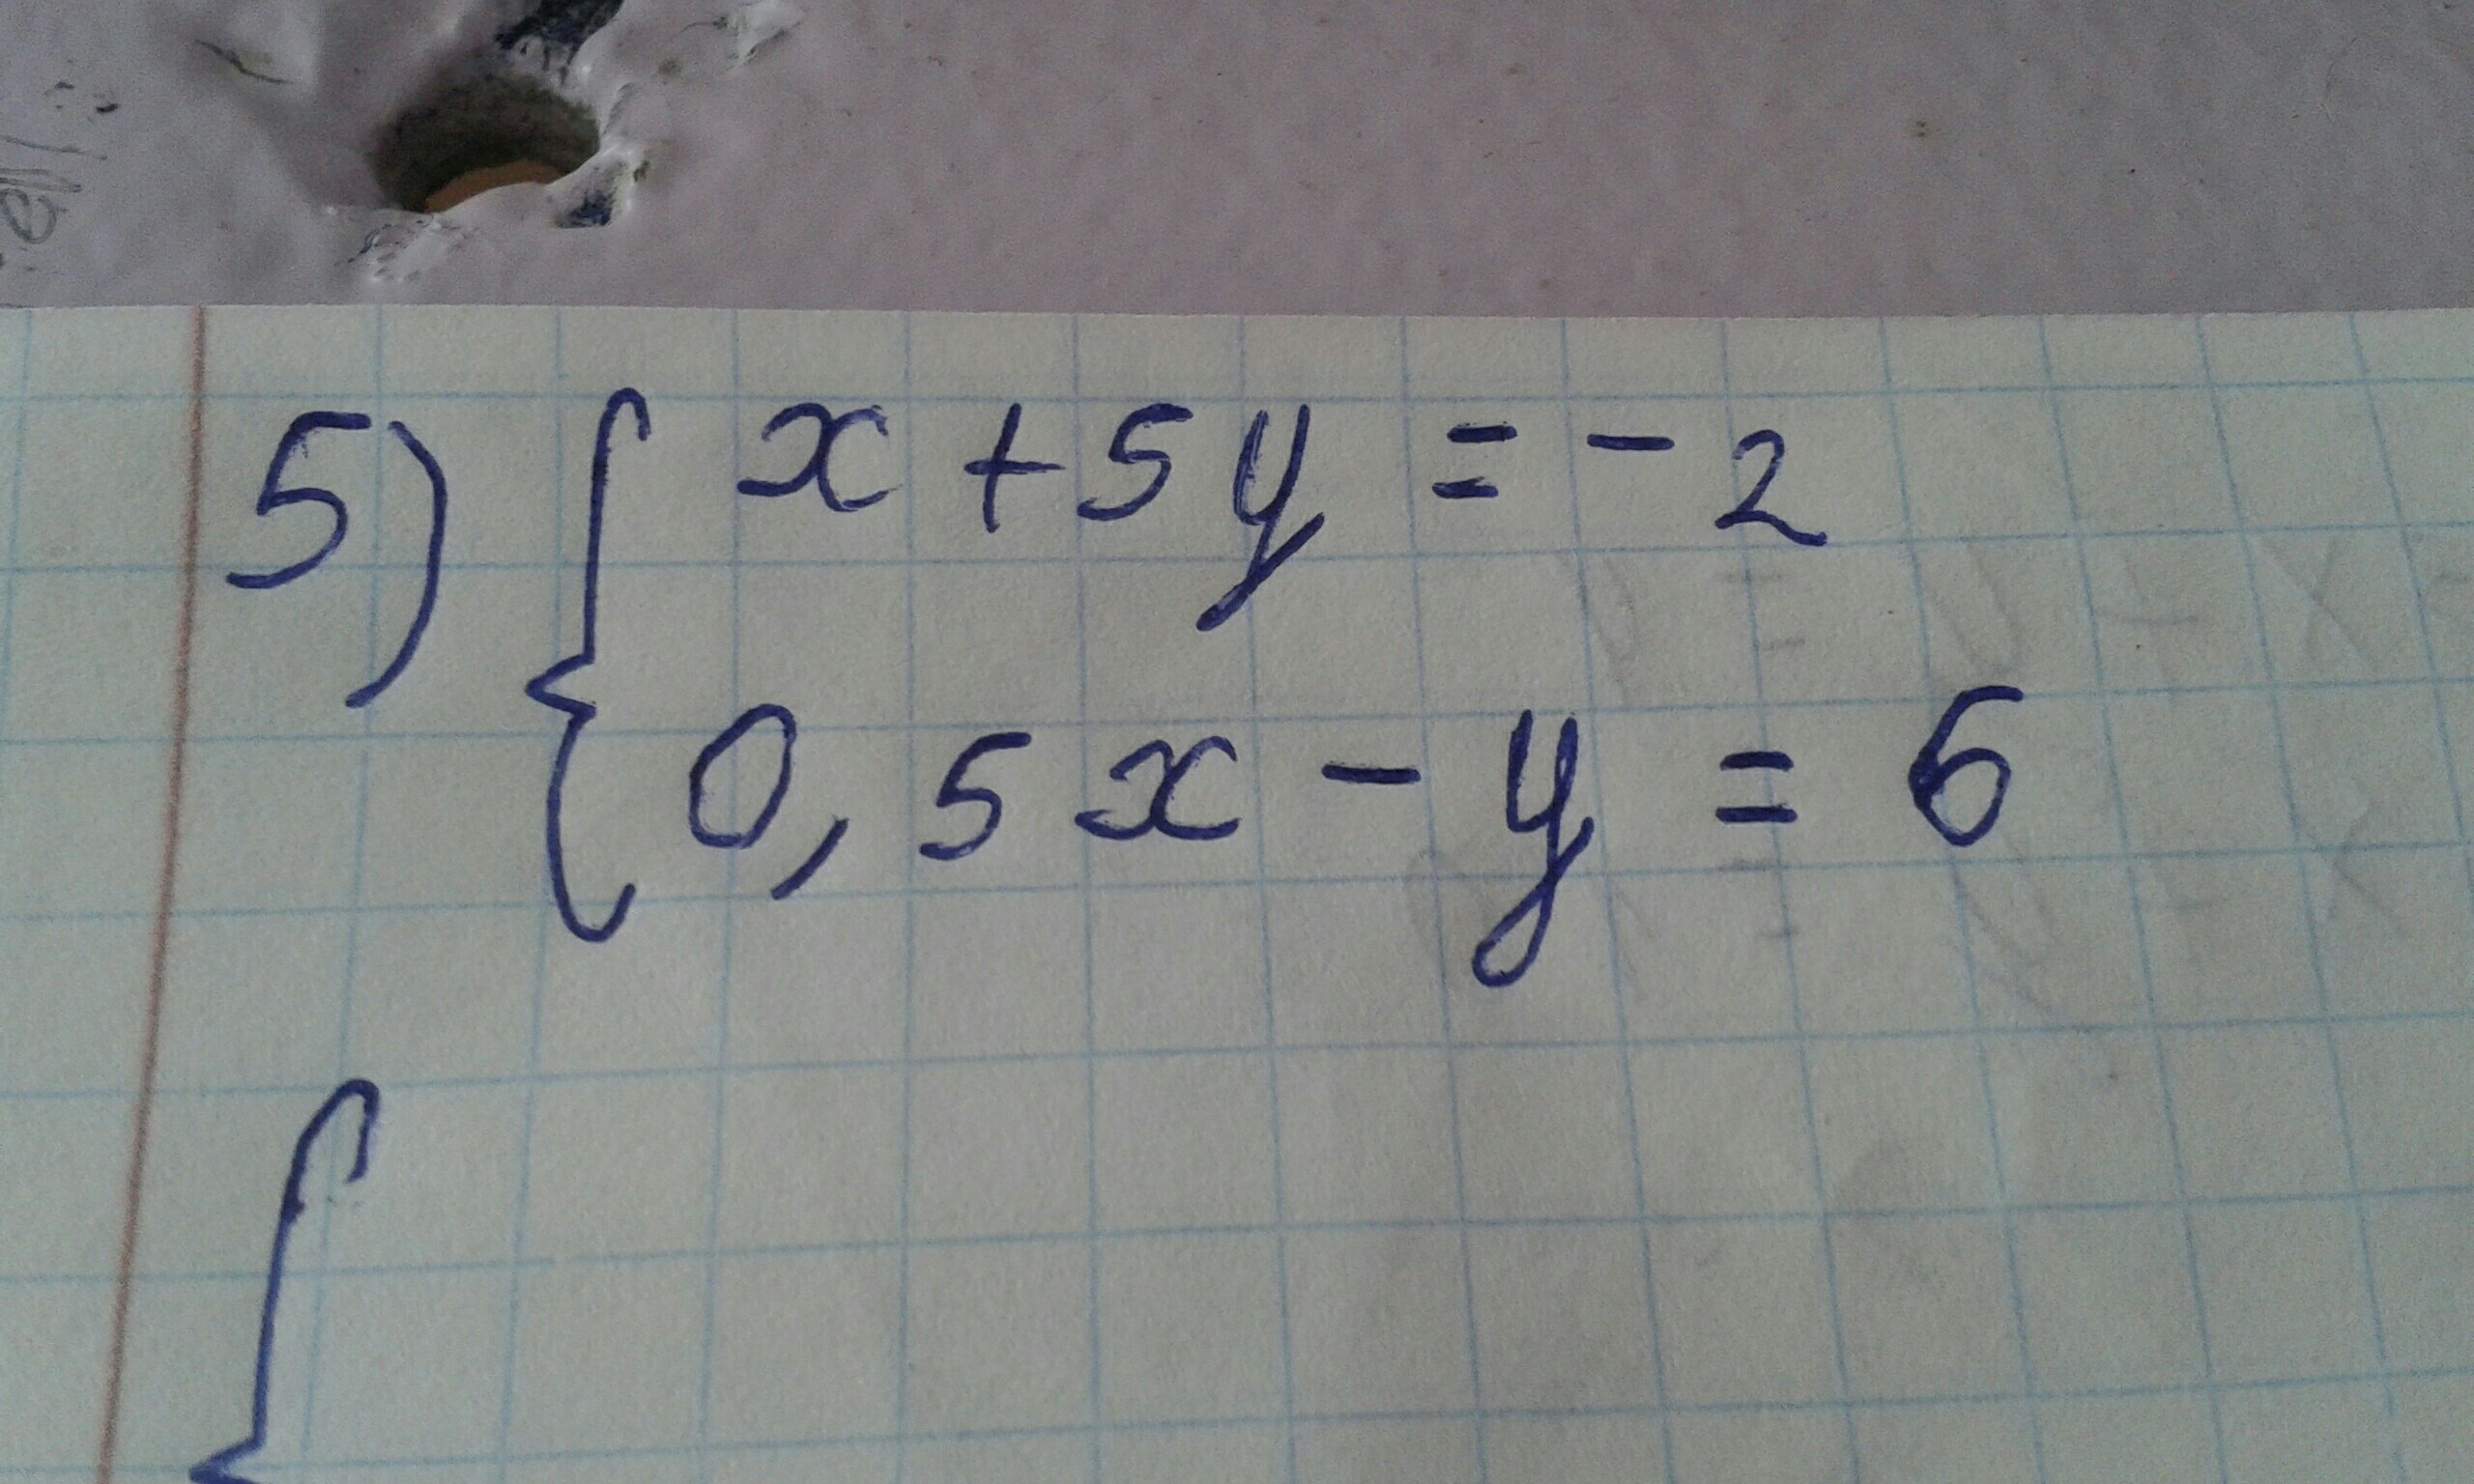 5) { x + 5y = - 2
0,5x - y = 6
{